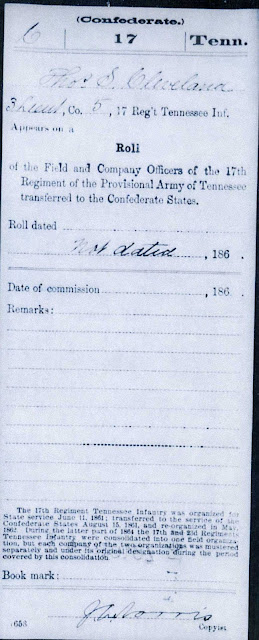 (Confederate.)
C 17 Tenn.
Thos S. Cleveland
3 Lieut, Co. 5, 17 Reg't Tennessee Inf.
Appears on a
Roll
of the Field and Company Officers of the 17th
Regiment of the Provisional Army of Tennessee
transferred to the Confederate States.
Roll dated
Not dated, 186 .
Date of commission, 186 .
Remarks:
The 17th Regiment Tennessee Infantry was organized for
State service June 11, 1861; transferred to the service of the
Confederate States August 15, 1861, and re-organized in May,
1862. During the latter part of 1864 the 17th and 23d Regiments
Tennessee Infantry were consolidated into one field organiza-
tion, but each company of the two organizations was mustered
separately and under its original designation during the period
covered by this consolidation.
Book mark:
(656 Copyist